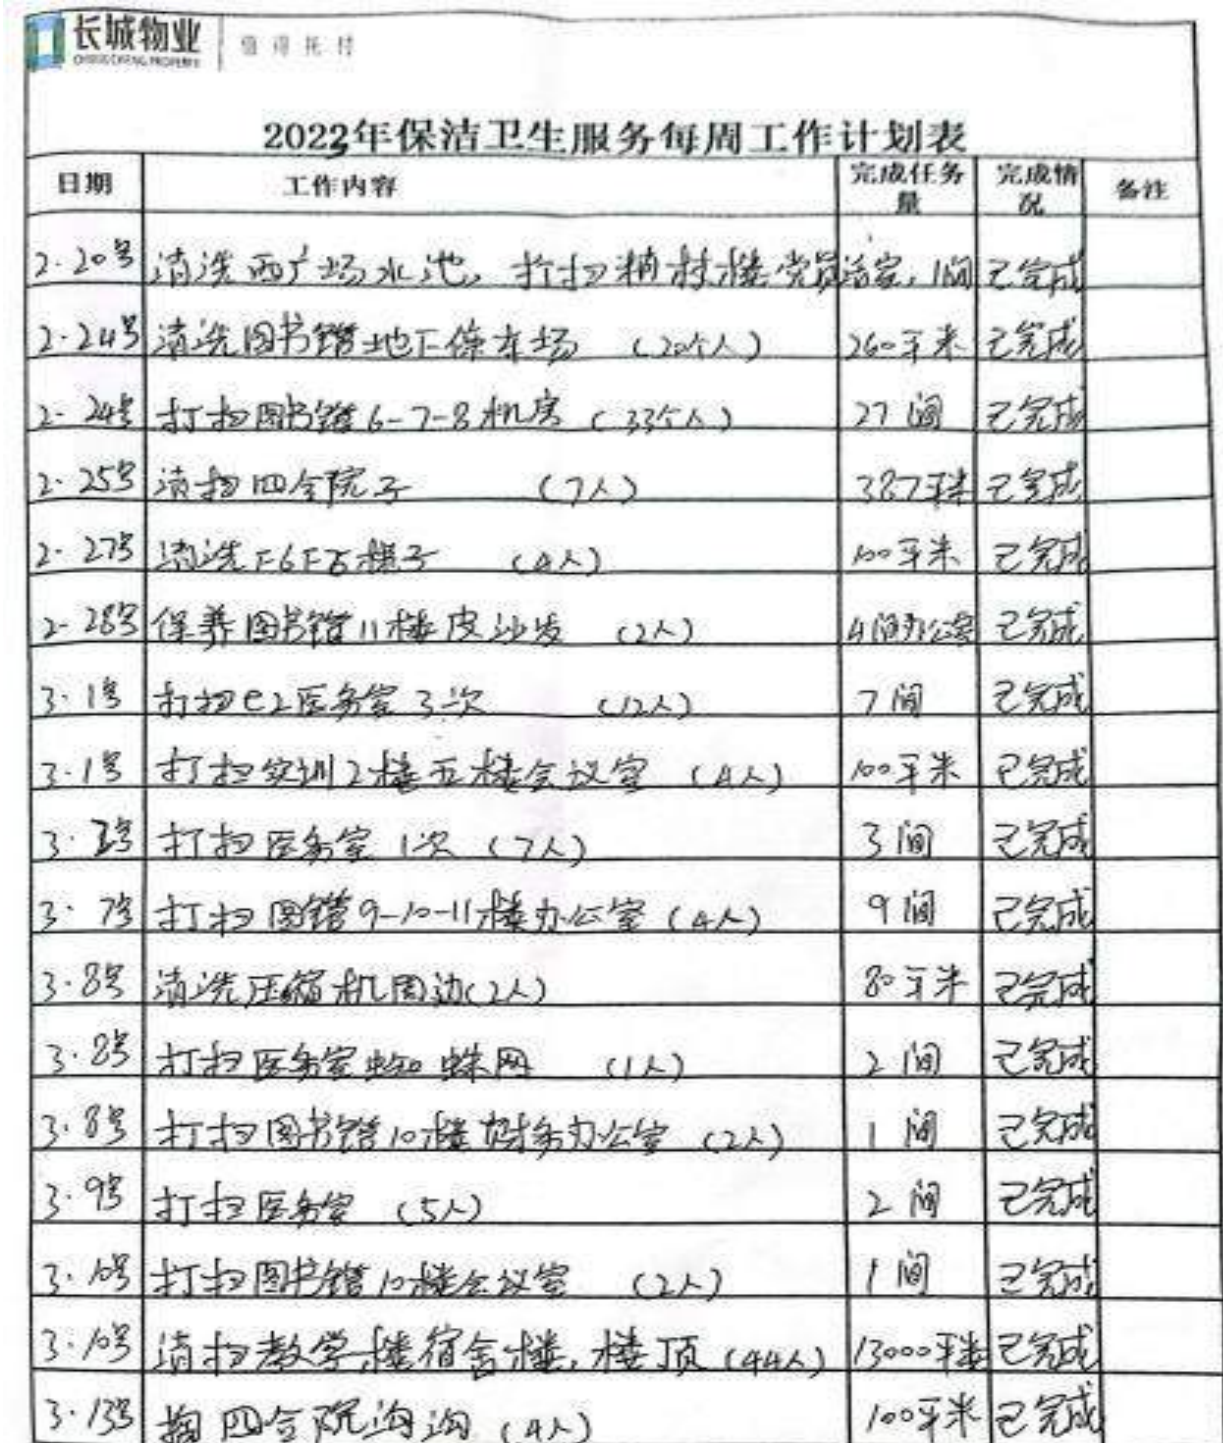 长城物业 值得托付
CHANGCHENG PROPERTY
2023年保洁卫生服务每周工作计划表
日期 工作内容 完成任务量 完成情况 备注
2.20号 清洗西广场水池,打扫精村楼党员活室,1间 已完成
2.24号 清洗图书馆地下停车场 (20个人) 260平米 已完成
2-24号 打扫图书馆6-7-8机房 (33个人) 27间 已完成
2.25号 清扫四合院子 (7人) 387平米 已完成
2.27号 清洗F6F5梯子 (4人) 100平米 已完成
2-28号 保养图书馆11楼皮沙发 (2人) 4间办公室 已完成
3.1号 打扫e2医务室3次 (12人) 7间 已完成
3.1号 打扫实训2楼五楼会议室 (4人) 100平米 已完成
3. 号 打扫医务室1次 (7人) 3间 已完成
3.7号 打扫图馆9-10-11楼办公室 (4人) 9间 已完成
3.8号 清洗压缩机周边(2人) 80平米 已完成
3.8号 打扫医务室蜘蛛网 (1人) 2间 已完成
3.8号 打扫图书馆10楼财务办公室 (2人) 1间 已完成
3.9号 打扫医务室 (5人) 2间 已完成
3.10号 打扫图书馆10楼会议室 (2人) 1间 已完成
3.10号 清扫教学楼宿舍楼,楼顶 (44人) 13000平米 已完成
3.13号 掏四合院沟 (4人) 100平米 已完成